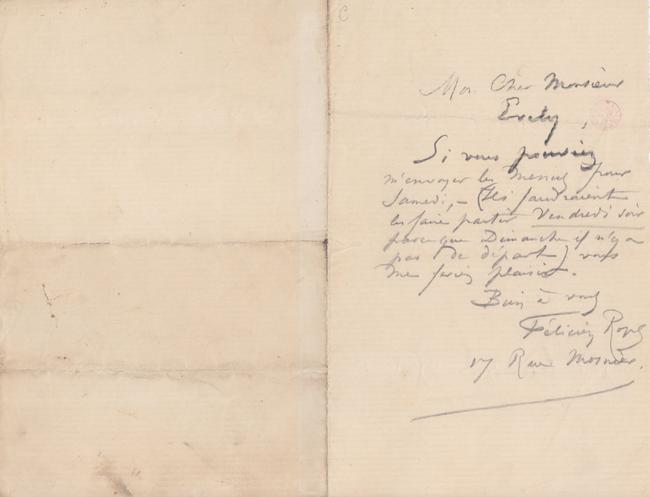 C
Mon Cher Monsieur
Evely,
Si vous pouviez
m'envoyer les menus pour
Samedi, – (Ils faudraient
les faire partir Vendredi soir
parceque Dimanche il n'y a
pas de départ) vous
me feriez plaisir.
Bien à vous
Félicien Rops
17 Rue Mosnier.